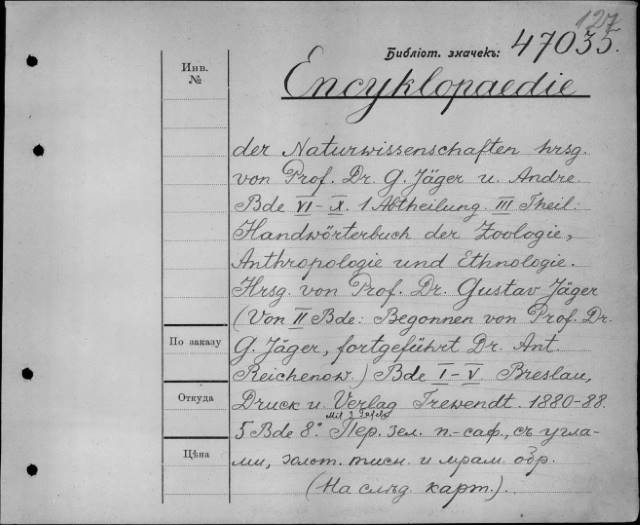 127
Библіот. значекъ: 47035.
Инв.
№
Encyklopaedie
der Naturwissenschaften hrsg.
von Prof. Dr. G. Jäger u. Andre
Bde VI-X. 1 Abtheilung. III Theil:
Handwörterbuch der Zoologie,
Anthropologie und Ethnologie.
Hrsg. von Prof. Dr. Gustav Jäger
(Von II Bde: Begonnen von Prof. Dr.
По заказу
G. Jäger, fortgeführt Dr. Ant.
Reichenow.) Bde I-V. Breslau,
Откуда
Druck u. Verlag Trewendt. 1880-88.
Mit 2 Tafeln
5 Bde 8º. Пер. зел. п.-саф., съ угла-
Цѣна
ми, золот. тисн. и мрам. обр.
(На слѣд. карт.).